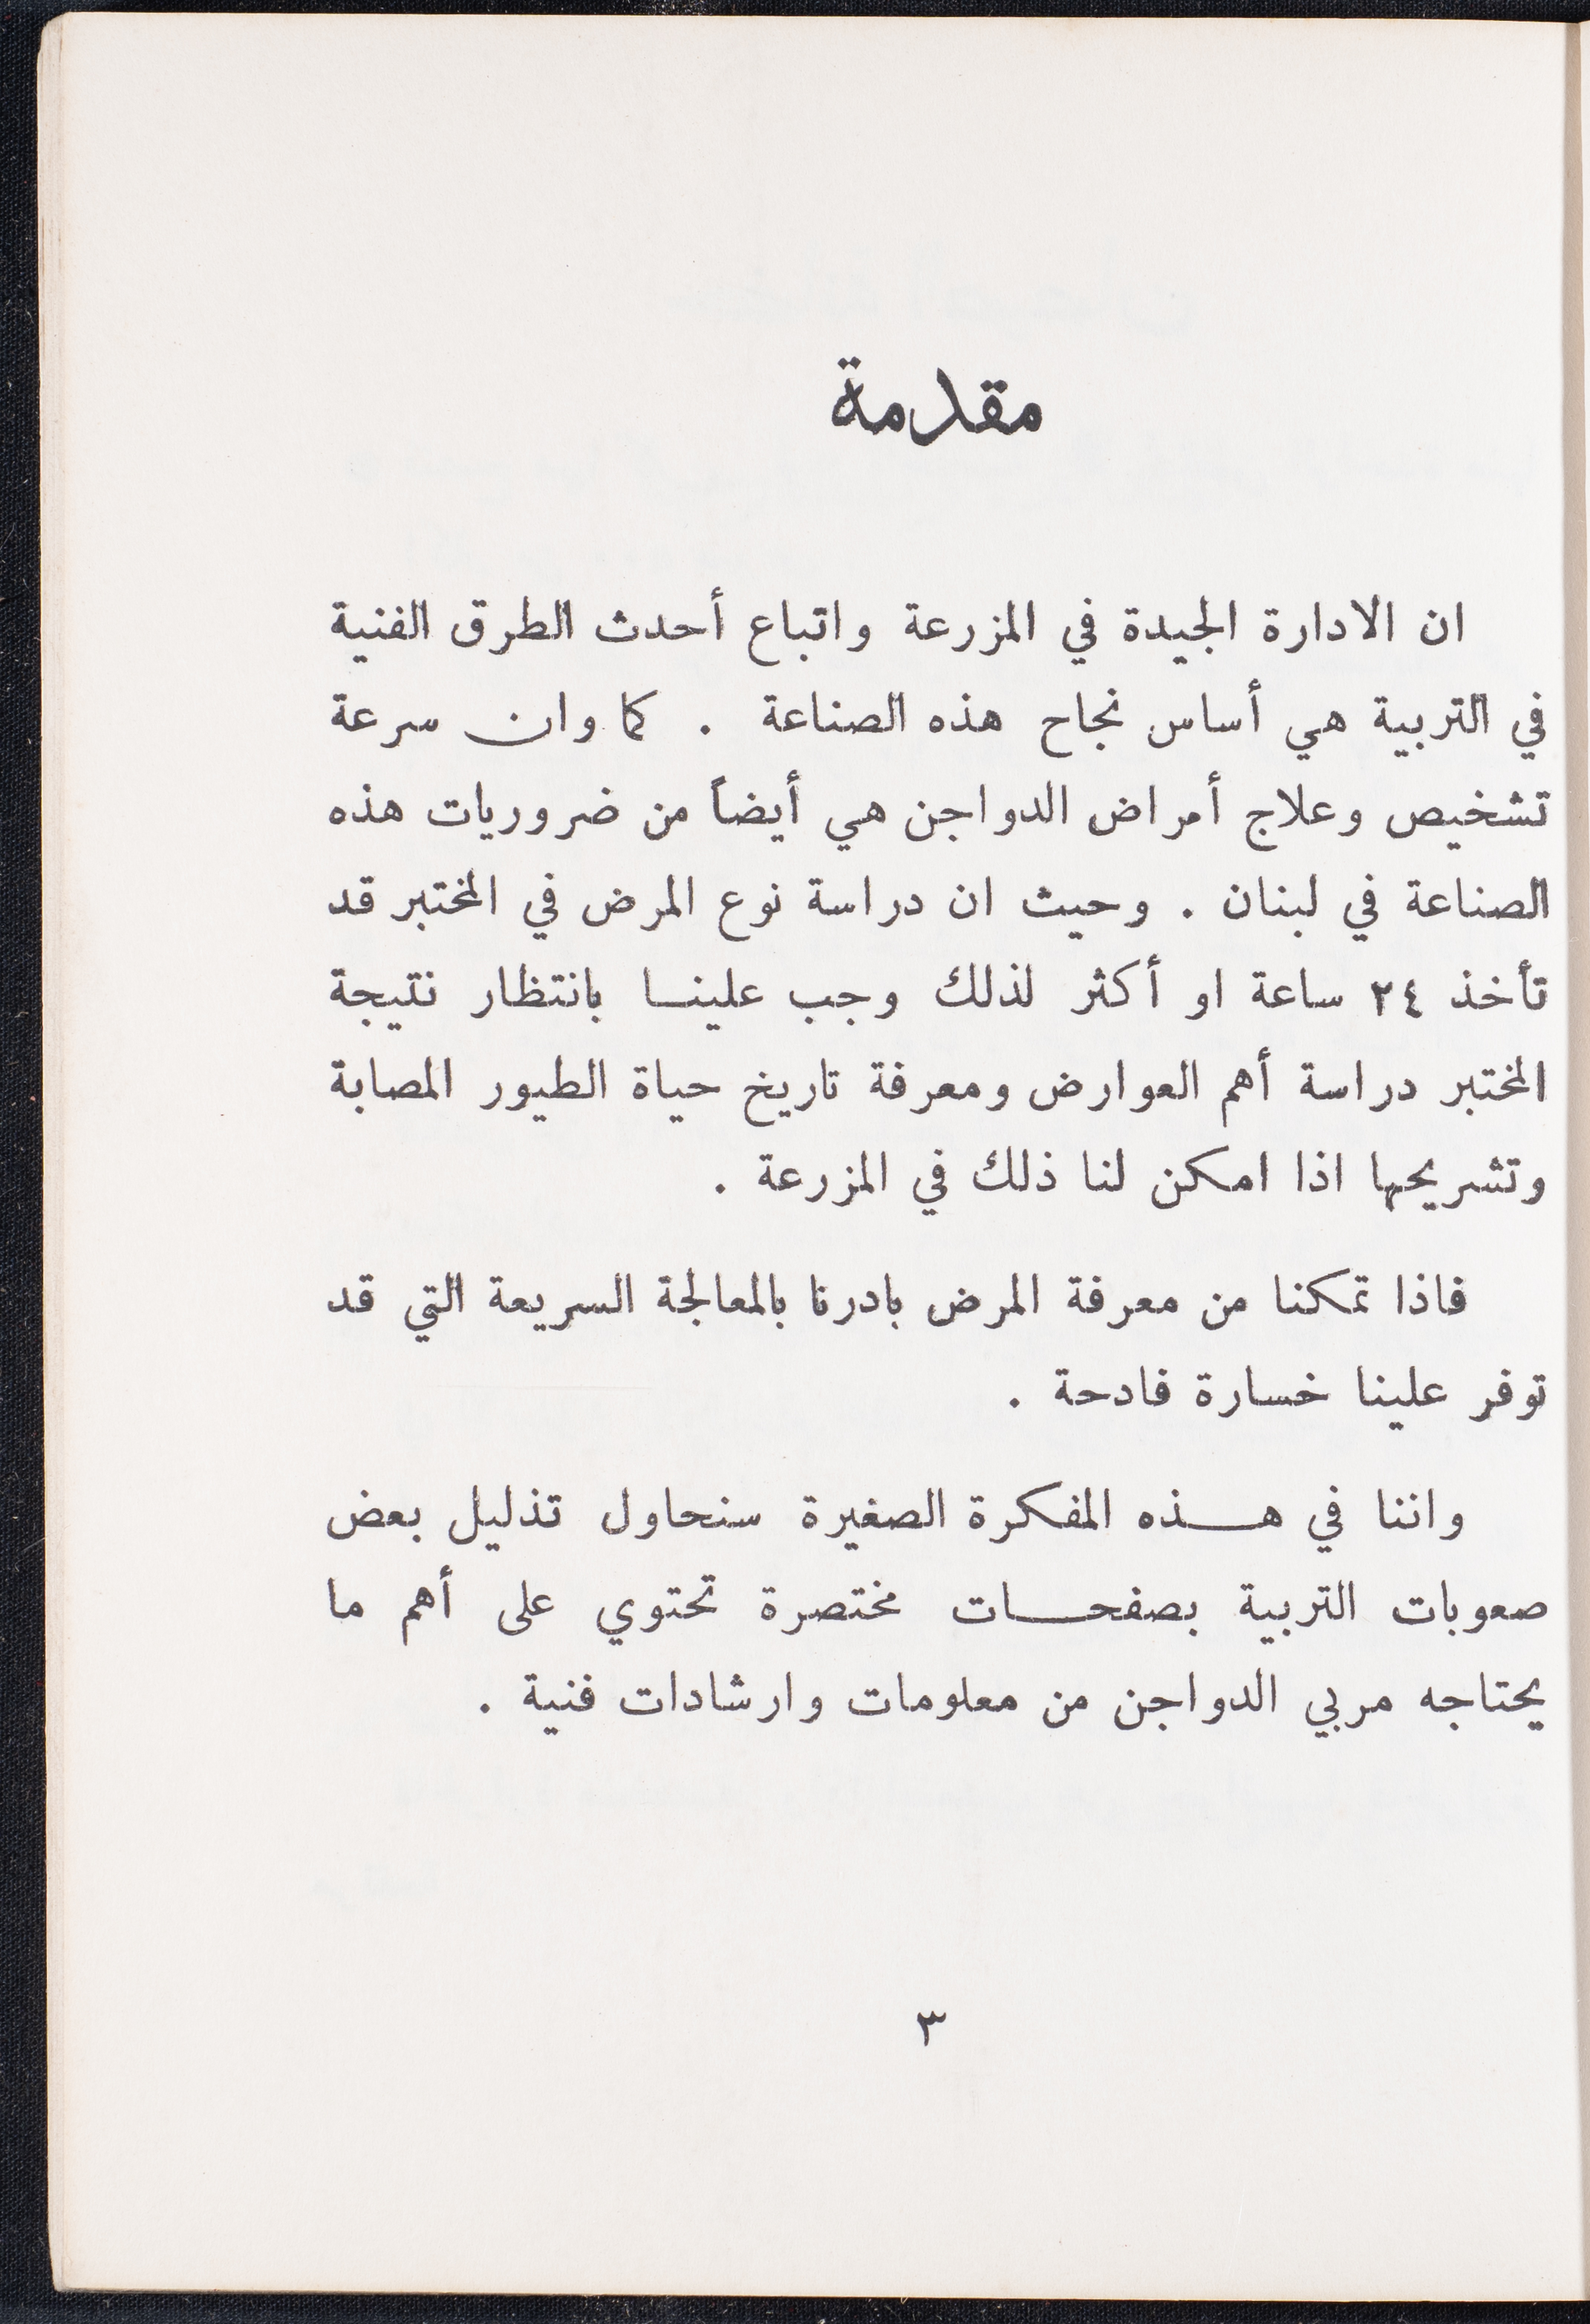 مقدمة
ان الادارة الجيدة في المزرعة واتباع أحدث الطرق الفنية
في التربية هي أساس نجاح هذه الصناعة . كما وان سرعة
تشخيص وعلاج أمراض الدواجن هي أيضاً من ضروريات هذه
الصناعة في لبنان . وحيث ان دراسة نوع المرض في المختبر قد
تأخذ ٢٤ ساعة او أكثر لذلك وجب علينا بانتظار نتيجة
المختبر دراسة أهم العوارض ومعرفة تاريخ حياة الطيور المصابة
وتشريحها اذا امكن لنا ذلك في المزرعة .
فاذا تمكنا من معرفة المرض بادرنا بالمعالجة السريعة التي قد
توفر علينا خسارة فادحة .
واننا في هذه المفكرة الصغيرة سنحاول تذليل بعض
صعوبات التربية بصفحات مختصرة تحتوي على أهم ما
يحتاجه مربي الدواجن من معلومات وارشادات فنية .
٣